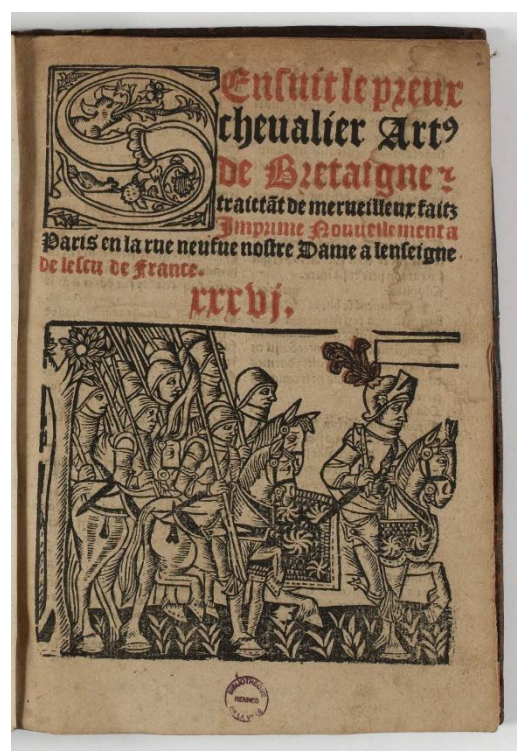 SEnsuit le preux
cheualier Artꝰ
de Bretaigne ⁊
traictãt de merueilleux faitz
Imprime Nouuellement a
Paris en la rue neufue nostre Dame a lenseigne
de lescu de France.
xxxvj.
BIBLIOTHEQUE
RENNES
DE LA VILLE